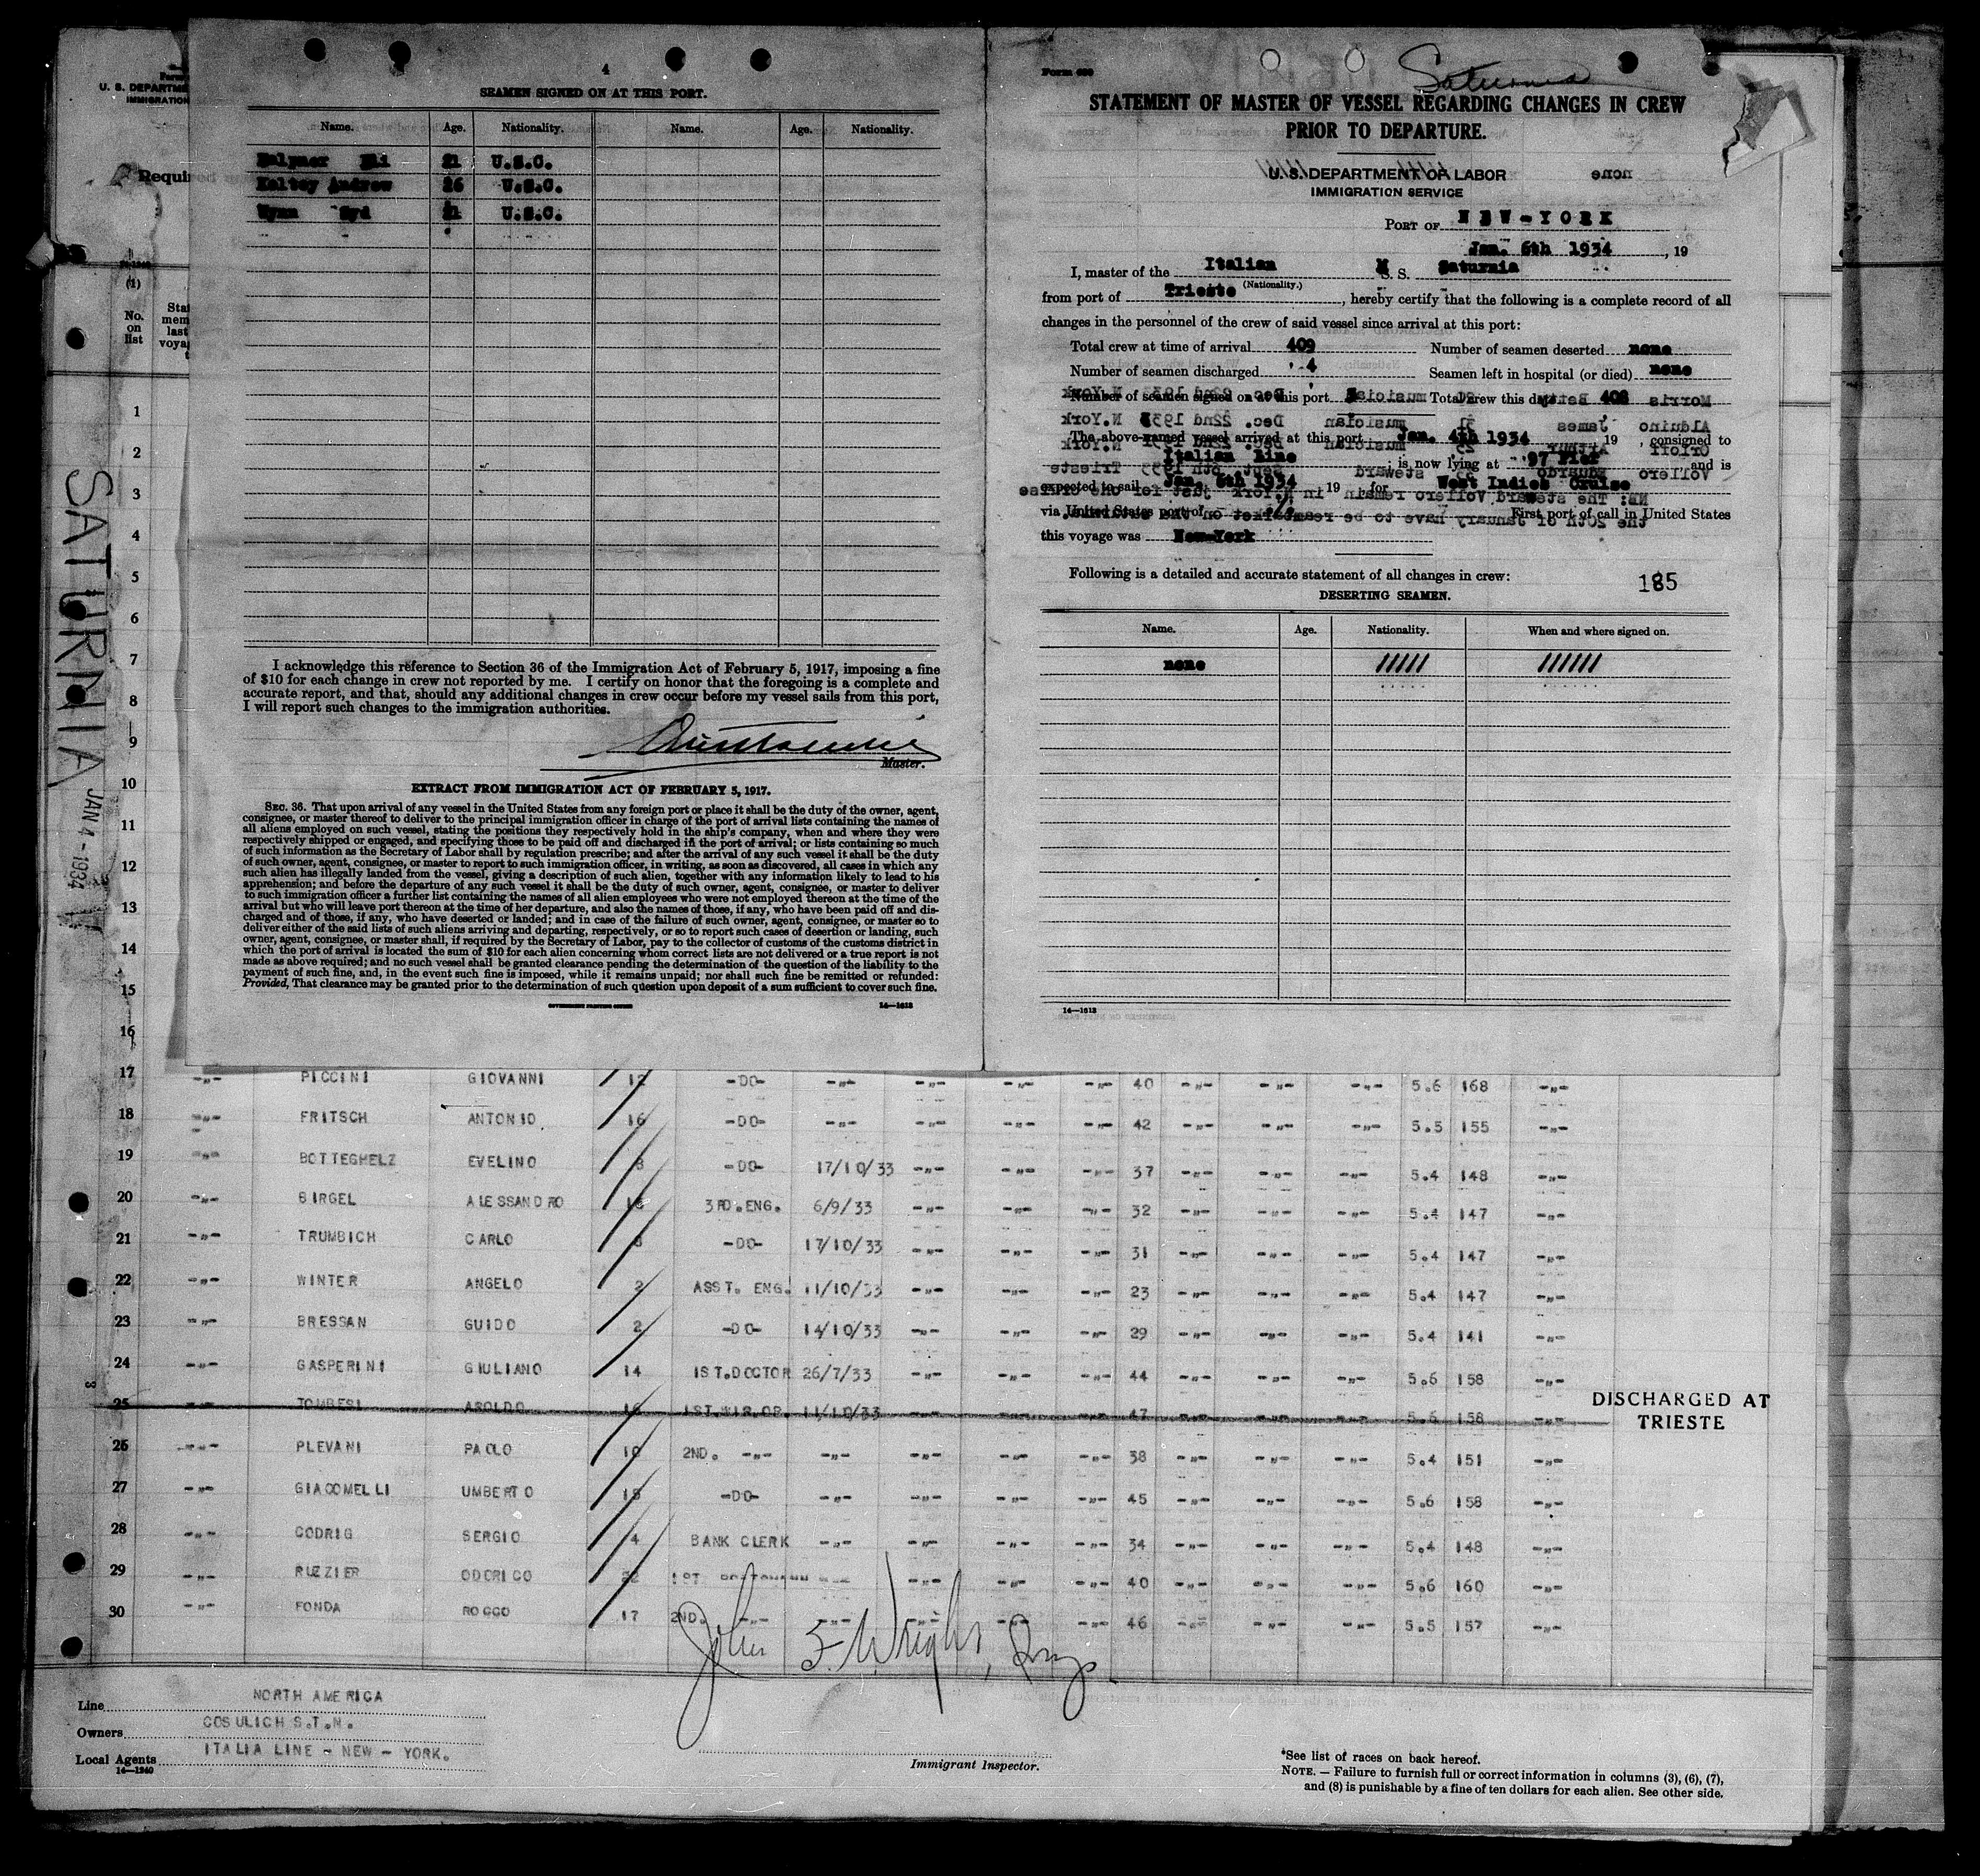 4
SEAMEN SIGNED ON AT THIS PORT.
Name. Age. Nationality. Name. Age. Nationality.
21 U.S.C.
Andrew 26 U.S.C.
Wynn Syd 21 U.S.C.
I acknowledge this reference to Section 36 of the Immigration Act of February 5, 1917, imposing a fine
of $10 for each change in crew not reported by me. I certify on honor that the foregoing is a complete and
accurate report, and that, should any additional changes in crew occur before my vessel sails from this port,
I will report such changes to the immigration authorities.
Master.
EXTRACT FROM IMMIGRATION ACT OF FEBRUARY 5, 1917.
SEC. 36. That upon arrival of any vessel in the United States from any foreign port or place it shall be the duty of the owner, agent,
consignee, or master thereof to deliver to the principal immigration officer in charge of the port of arrival lists containing the names of
all aliens employed on such vessel, stating the positions they respectively hold in the ship's company, when and where they were
respectively shipped or engaged, and specifying those to be paid off and discharged in the port of arrival; or lists containing so much
of such information as the Secretary of Labor shall by regulation prescribe; and after the arrival of any such vessel it shall be the duty
of such owner, agent, consignee, or master to report to such immigration officer, in writing, as soon as discovered, all cases in which any
such alien has illegally landed from the vessel, giving a description of such alien, together with any information likely to lead to his
apprehension; and before the departure of any such vessel it shall be the duty of such owner, agent, consignee, or master to deliver
to such immigration officer a further list containing the names of all alien employees who were not employed thereon at the time of the
arrival but who will leave port thereon at the time of her departure, and also the names of those, if any, who have been paid off and dis-
charged and of those, if any, who have deserted or landed; and in case of the failure of such owner, agent, consignee, or master so to
deliver either of the said lists of such aliens arriving and departing, respectively, or so to report such cases of desertion or landing, such
owner, agent, consignee, or master shall, if required by the Secretary of Labor, pay to the collector of customs of the customs district in
which the port of arrival is located the sum of $10 for each alien concerning whom correct lists are not delivered or a true report is not
made as above required; and no such vessel shall be granted clearance pending the determination of the question of the liability to the
payment of such fine, and, in the event such fine is imposed, while it remains unpaid; nor shall such fine be remitted or refunded:
Provided, That clearance may be granted prior to the determination of such question upon deposit of a sum sufficient to cover such fine.
GOVERNMENT PRINTING OFFICE 14—1613
Form 689
Saturnia
STATEMENT OF MASTER OF VESSEL REGARDING CHANGES IN CREW
PRIOR TO DEPARTURE.
U. S. DEPARTMENT OF LABOR
IMMIGRATION SERVICE
PORT OF NEW-YORK
Jan. 6th 1934, 19
I, master of the Italian M S. S. Saturnia
(Nationality.)
from port of Trieste, hereby certify that the following is a complete record of all
changes in the personnel of the crew of said vessel since arrival at this port:
Total crew at time of arrival 409 Number of seamen deserted none
Number of seamen discharged 4 Seamen left in hospital (or died) none
Number of seamen signed on at this port Total crew this day 408
The above-named vessel arrived at this port Jan. 4th 1934 19 , consigned to
Italian Line ; is now lying at 97 Pier and is
expected to sail Jan. 6th 1934 19 for West Indies Cruise
via United States port of First port of call in United States
this voyage was New-York
Following is a detailed and accurate statement of all changes in crew: 185
DESERTING SEAMEN.
Name. Age. Nationality. When and where signed on.
none ///// //////
14—1613
U. S. DEPARTME
IMMIGRATION
Requir
(1)
No. on list
SATURNIA
JAN 4 - 1934
1
2
3
4
5
6
7
8
9
10
11
12
13
14
15
16
17 -"- PICCINI GIOVANNI 12 -DO- -"- -"- -"- -"- 40 -"- -"- -"- 5.6 168 -"-
18 -"- FRITSCH ANTONIO 16 -DO- -"- -"- -"- -"- 42 -"- -"- -"- 5.5 155 -"-
19 -"- BOTTEGHELZ EVELINO 8 -DO- 17/10/33 -"- -"- -"- 37 -"- -"- -"- 5.4 148 -"-
20 -"- BIRGEL ALESSANDRO 3RD.ENG. 6/9/33 -"- -"- -"- 32 -"- -"- -"- 5.4 147 -"-
21 -"- TRUMBICH CARLO -DO- 17/10/33 -"- -"- -"- 31 -"- -"- -"- 5.4 147 -"-
22 -"- WINTER ANGELO 2 ASST. ENG. 11/10/33 -"- -"- -"- 23 -"- -"- -"- 5.4 147 -"-
23 -"- BRESSAN GUIDO 2 -DO- 14/10/33 -"- -"- -"- 29 -"- -"- -"- 5.4 141 -"-
24 -"- GASPERINI GIULIANO 14 1ST.DOCTOR 26/7/33 -"- -"- -"- 44 -"- -"- -"- 5.6 158 -"-
25 TOMBESI ASOLDO 16 1ST.WIR.OP. 11/10/33 47 5.6 158 -"- DISCHARGED AT
TRIESTE
26 -"- PLEVANI PAOLO 10 2ND. -"- -"- -"- -"- -"- 38 -"- -"- -"- 5.4 151 -"-
27 -"- GIACOMELLI UMBERTO 18 -DO- -"- -"- -"- -"- 45 -"- -"- -"- 5.6 158 -"-
28 -"- CODRIG SERGIO 4 BANK CLERK -"- -"- -"- -"- 34 -"- -"- -"- 5.4 148 -"-
29 -"- RUZZIER ODORICO 22 1ST. -"- -"- -"- -"- 40 -"- -"- -"- 5.6 160 -"-
30 -"- FONDA ROCCO 17 2ND. -"- -"- -"- -"- -"- 46 -"- -"- -"- 5.5 157 -"-
Line NORTH AMERICA
Owners COSULICH S.T.N.
Local Agents ITALIA LINE - NEW - YORK.
14—1240
John S. Wright,
Immigrant Inspector.
*See list of races on back hereof.
NOTE. — Failure to furnish full or correct information in columns (3), (6), (7),
and (8) is punishable by a fine of ten dollars for each alien. See other side.